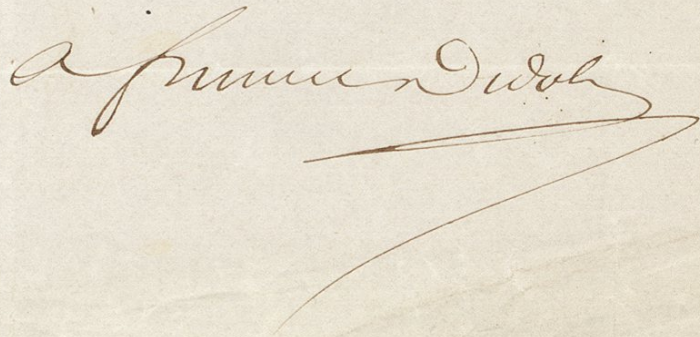 A firmin Didot